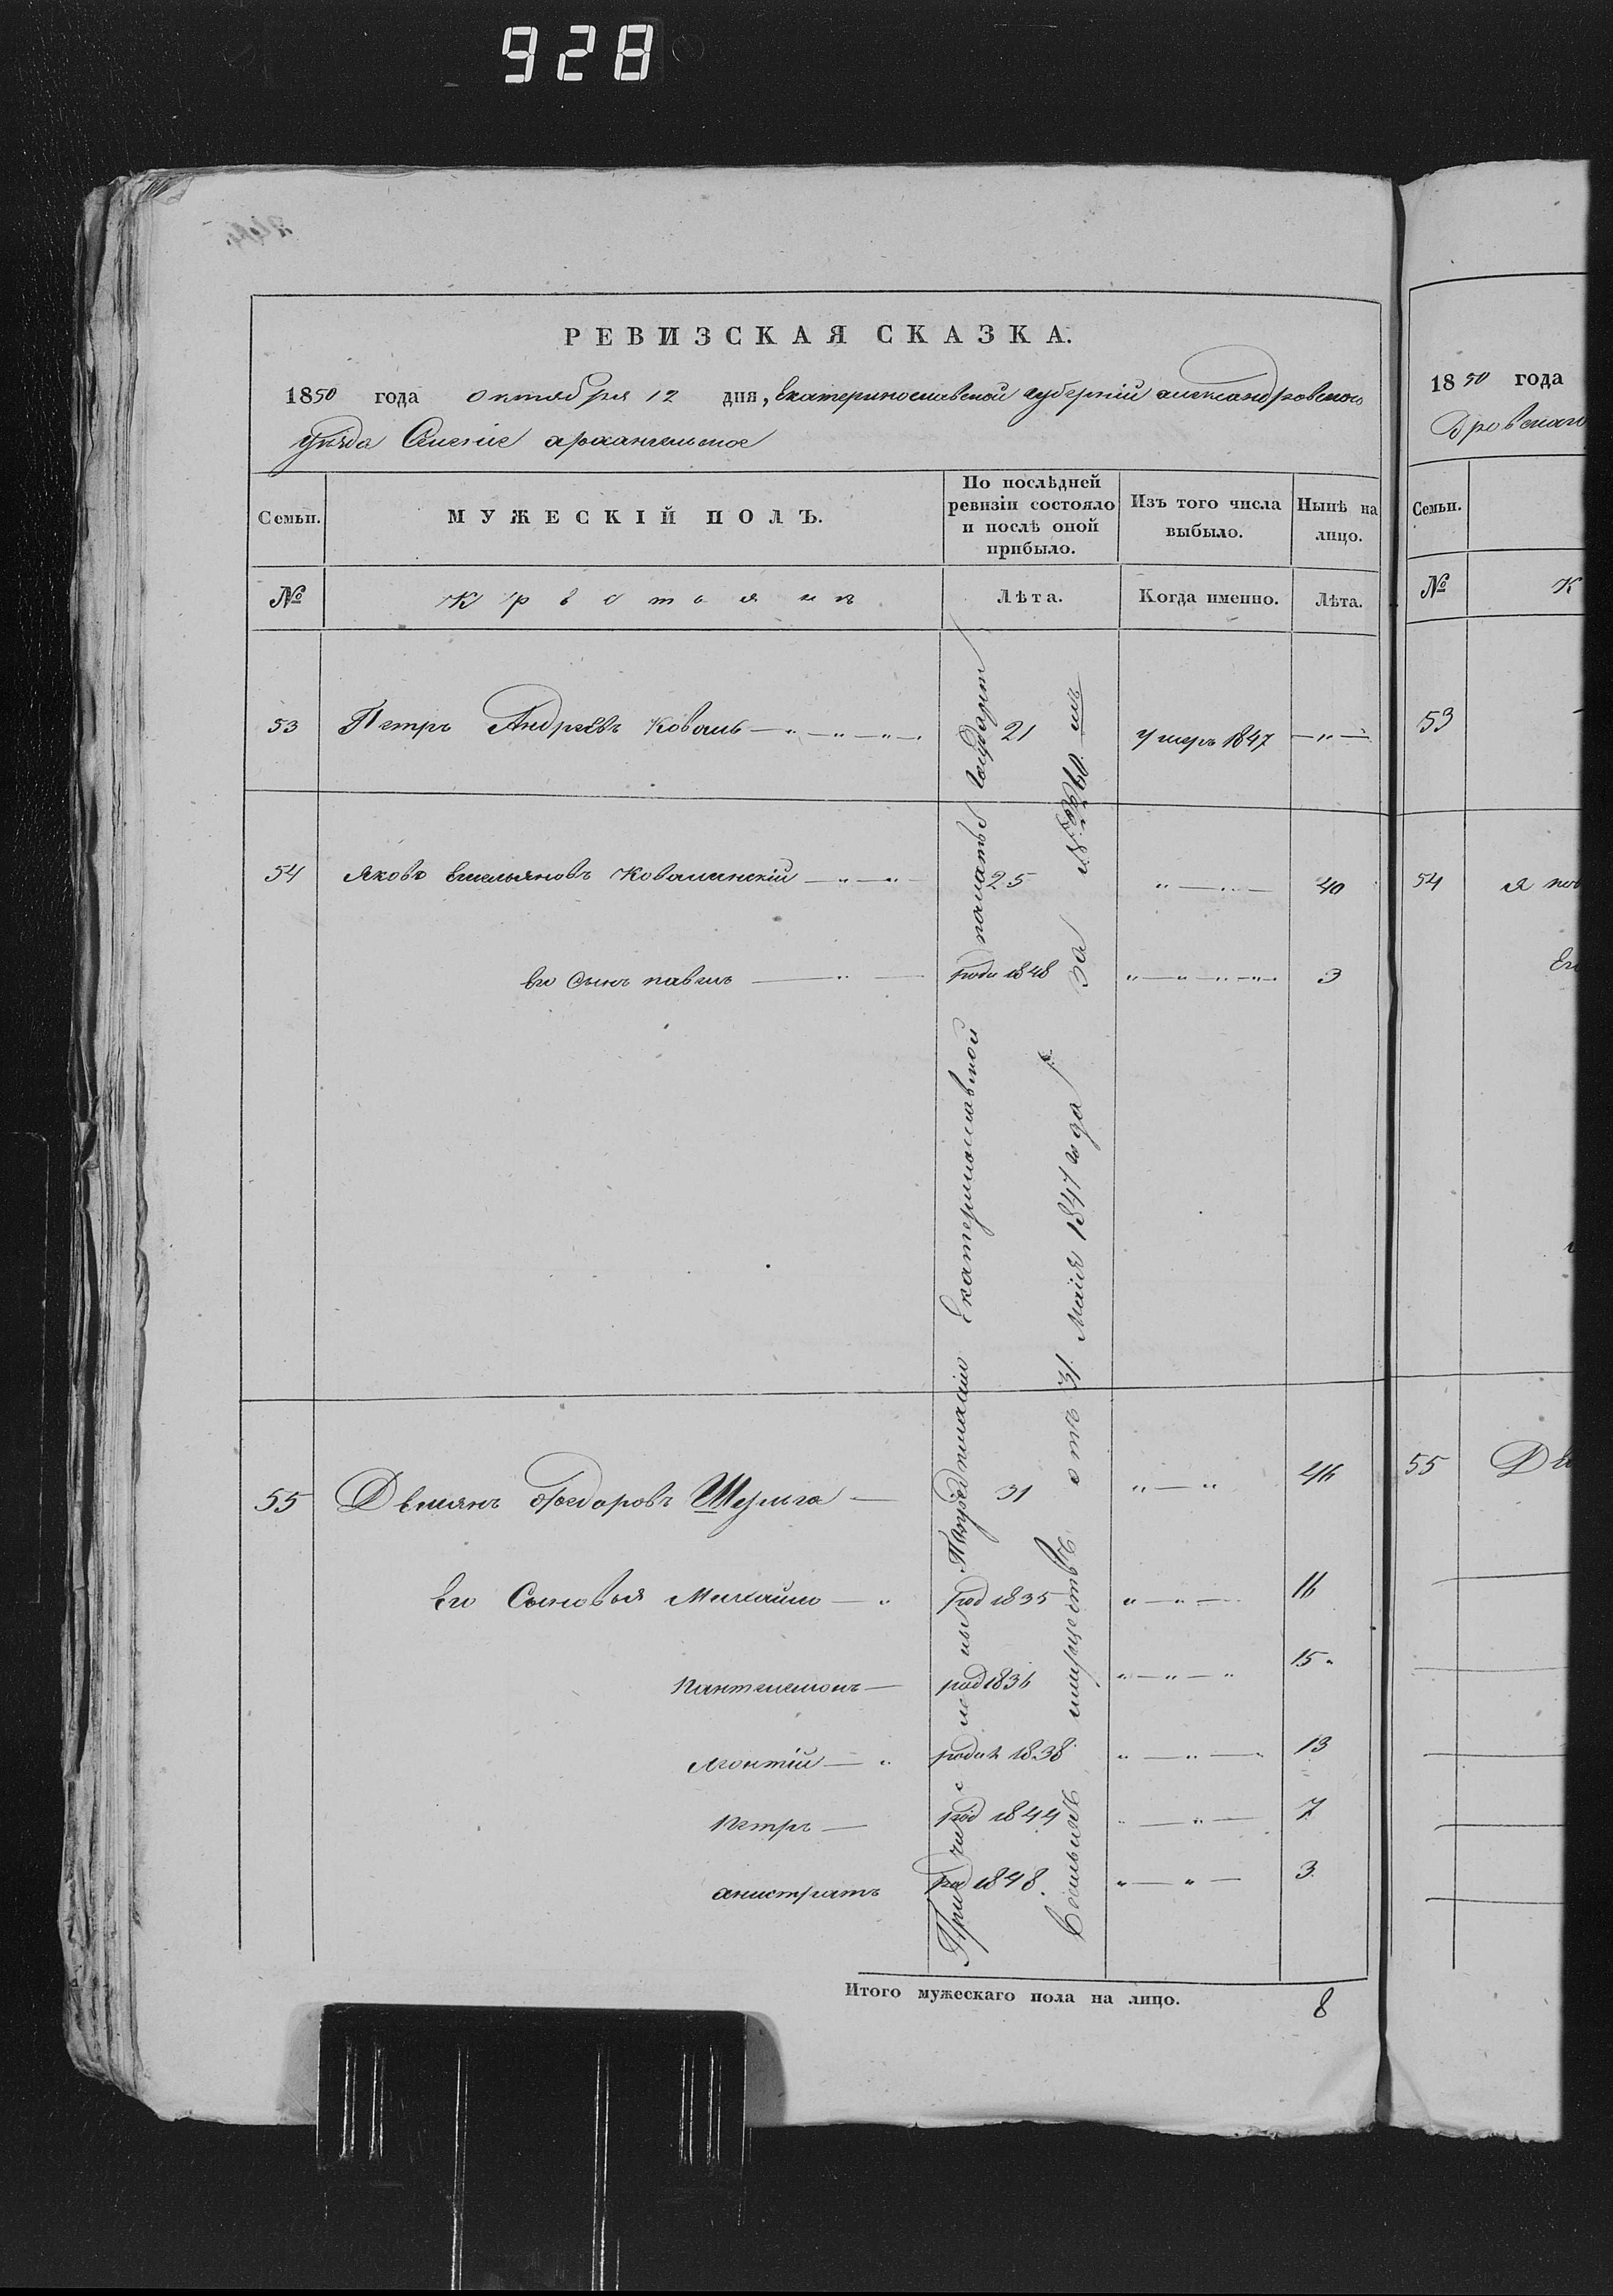 928
РЕВИЗСКАЯ СКАЗКА.
1850 года октября 12 дня, Екатеринославской губернии александровскаго
уѣзда Селеніе архангельское
Семьи.
МУЖЕСКІЙ ПОЛЪ.
По послѣдней ревизіи состояло и послѣ оной прибыло.
Изъ того числа выбыло.
Нынѣ на лицо.
№ Крестьянъ Лѣта. Когда именно. Лѣта.
53 Петръ Андреевъ Коваль 21 умеръ 1847
54 Яковъ Емельяновъ Ковалинскій 25 40
Его сынъ павелъ роди 1848 3
55 Демьянъ Федоровъ Шульга 31 46
Его Сыновья Михайло род 1835 16
Пантелемонъ род 1836 15
Леонтій родил 1838 13
Петръ род 1844 7
анистратъ род 1848 3
Причислены по Предписанію Екатеринославской палаты Государст
венныхъ имуществъ отъ 31 Маія 1847 года за №
Итого мужескаго пола на лицо. 8
1850 года
дровскаго
Семьи.
№ К
53
54 Я ков
Ег
55 Де